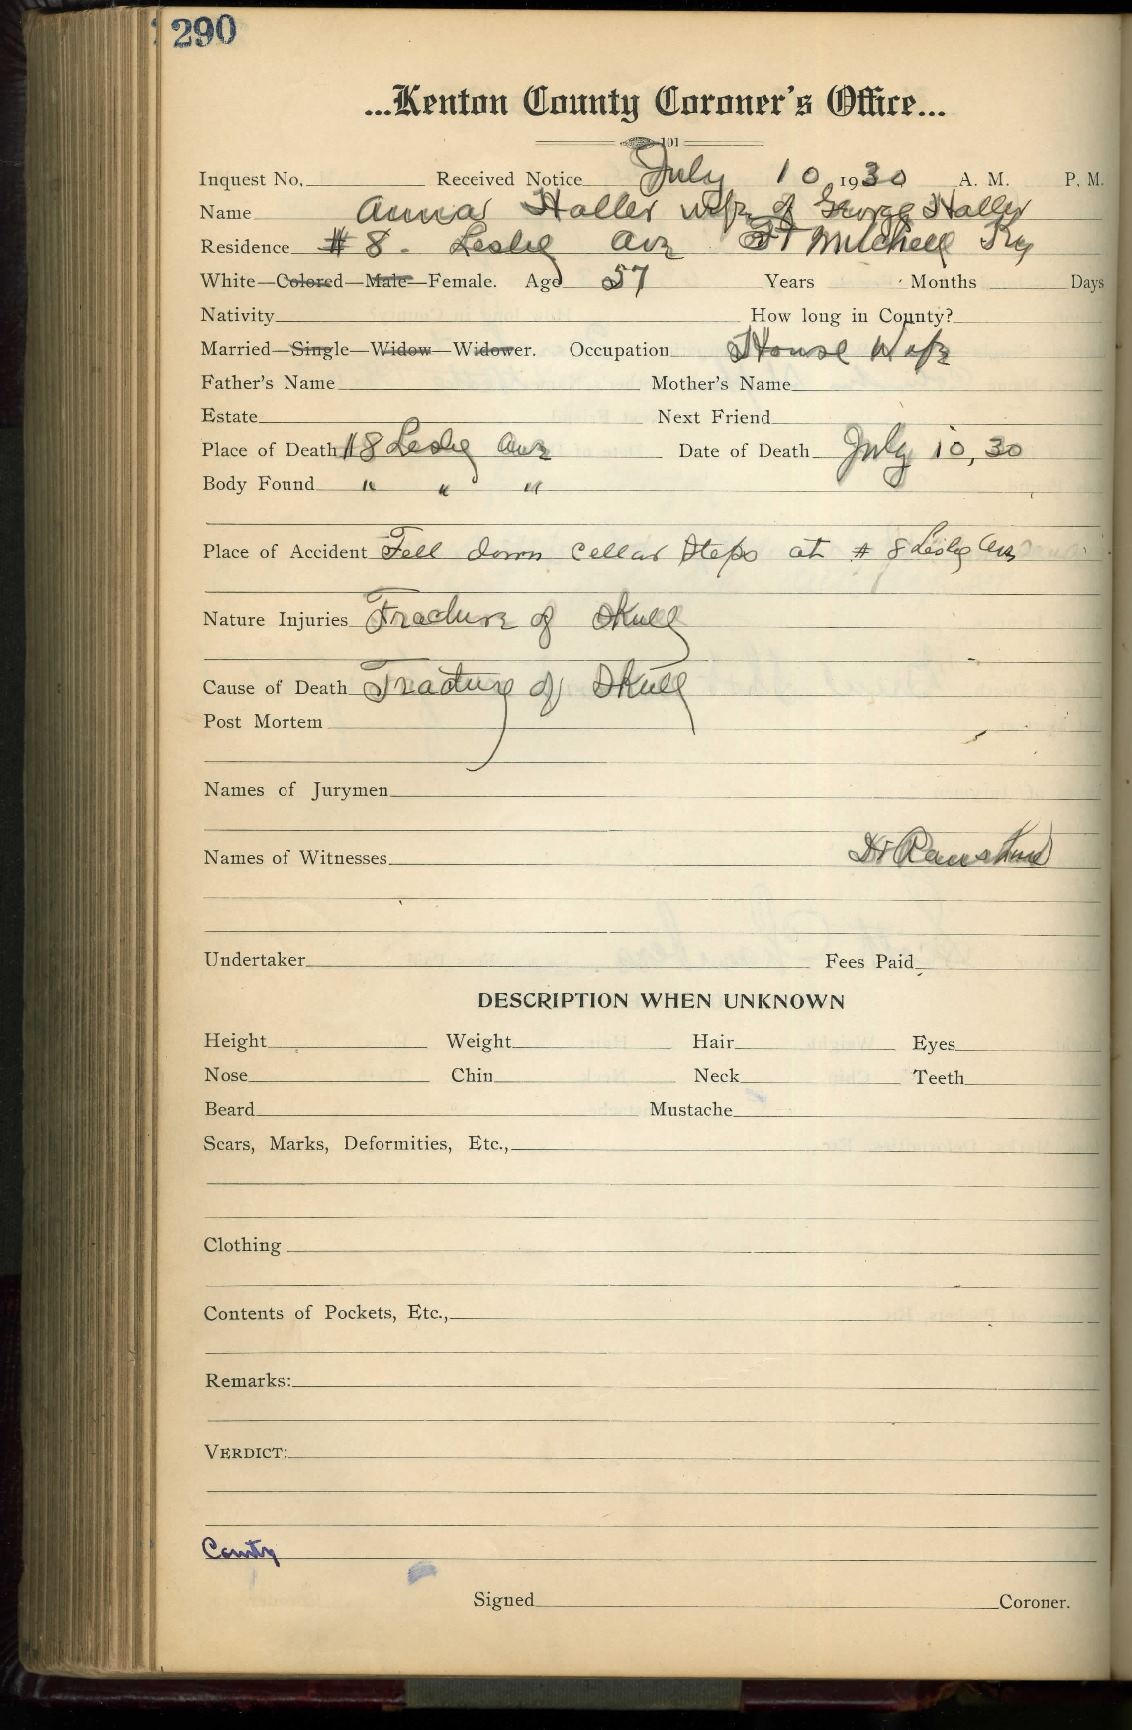 290
...Kenton County Coroner's Office...
101
Inquest No. Received Notice July 10 1930 A. M. P. M.
Name Anna Haller wife of George Haller
Residence # 8. Leslie Ave Ft Mitchell Ky
White—Colored—Male—Female. Age 57 Years Months Days
Nativity How long in County?
Married—Single—Widow—Widower. Occupation House Wife
Father's Name Mother's Name
Estate Next Friend
Place of Death #8 Leslie Ave Date of Death July 10, 30
Body Found " " "
Place of Accident Fell down cellar steps at # 8 Leslie Ave
Nature Injuries Fracture of Skull
Cause of Death Fracture of Skull
Post Mortem
Names of Jurymen
Names of Witnesses Dr
Undertaker Fees Paid
DESCRIPTION WHEN UNKNOWN
Height Weight Hair Eyes
Nose Chin Neck Teeth
Beard Mustache
Scars, Marks, Deformities, Etc.,
Clothing
Contents of Pockets, Etc.,
Remarks:
VERDICT:
County
Signed Coroner.